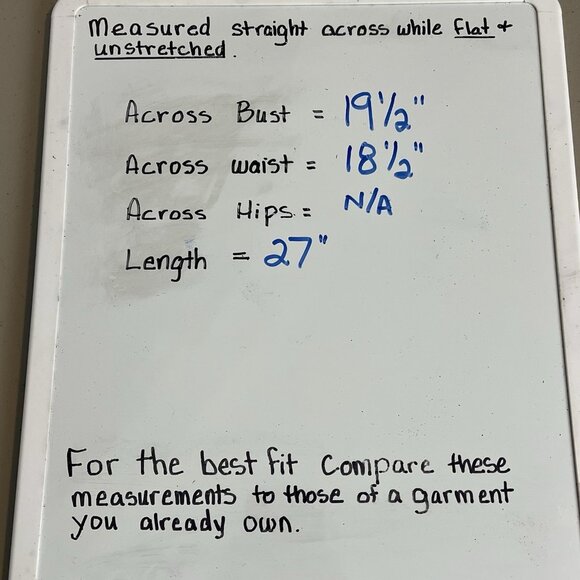 Measured straight across while flat +
unstretched.
Across Bust = 19 1/2"
Across waist = 18 1/2"
Across Hips = N/A
Length = 27"
For the best fit compare these
measurements to those of a garment
you already own.